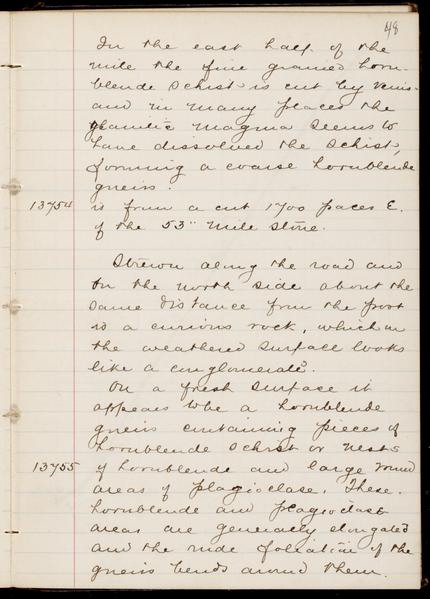 48
In the east half of the
mile the fine grained horn-
blende schist is cut by veins
and in many places the
granitic magma seems to
have dissolved the schist,
forming a coarse hornblende
gneiss.
13754 is from a cut 1700 paces E.
of the 53" mile stone.
Strewn along the road and
on the north side about the
same distance from the post
is a curious rock, which on
the weathered surface looks
like a conglomerate.
On a fresh surface it
appears to be a hornblende
gneiss containing pieces of
hornblende schist or nests
13755 of hornblende and large round
areas of plagioclase. These
hornblende and plagioclase
areas are generally elongated
and the rude foliation of the
gneiss bends around them.